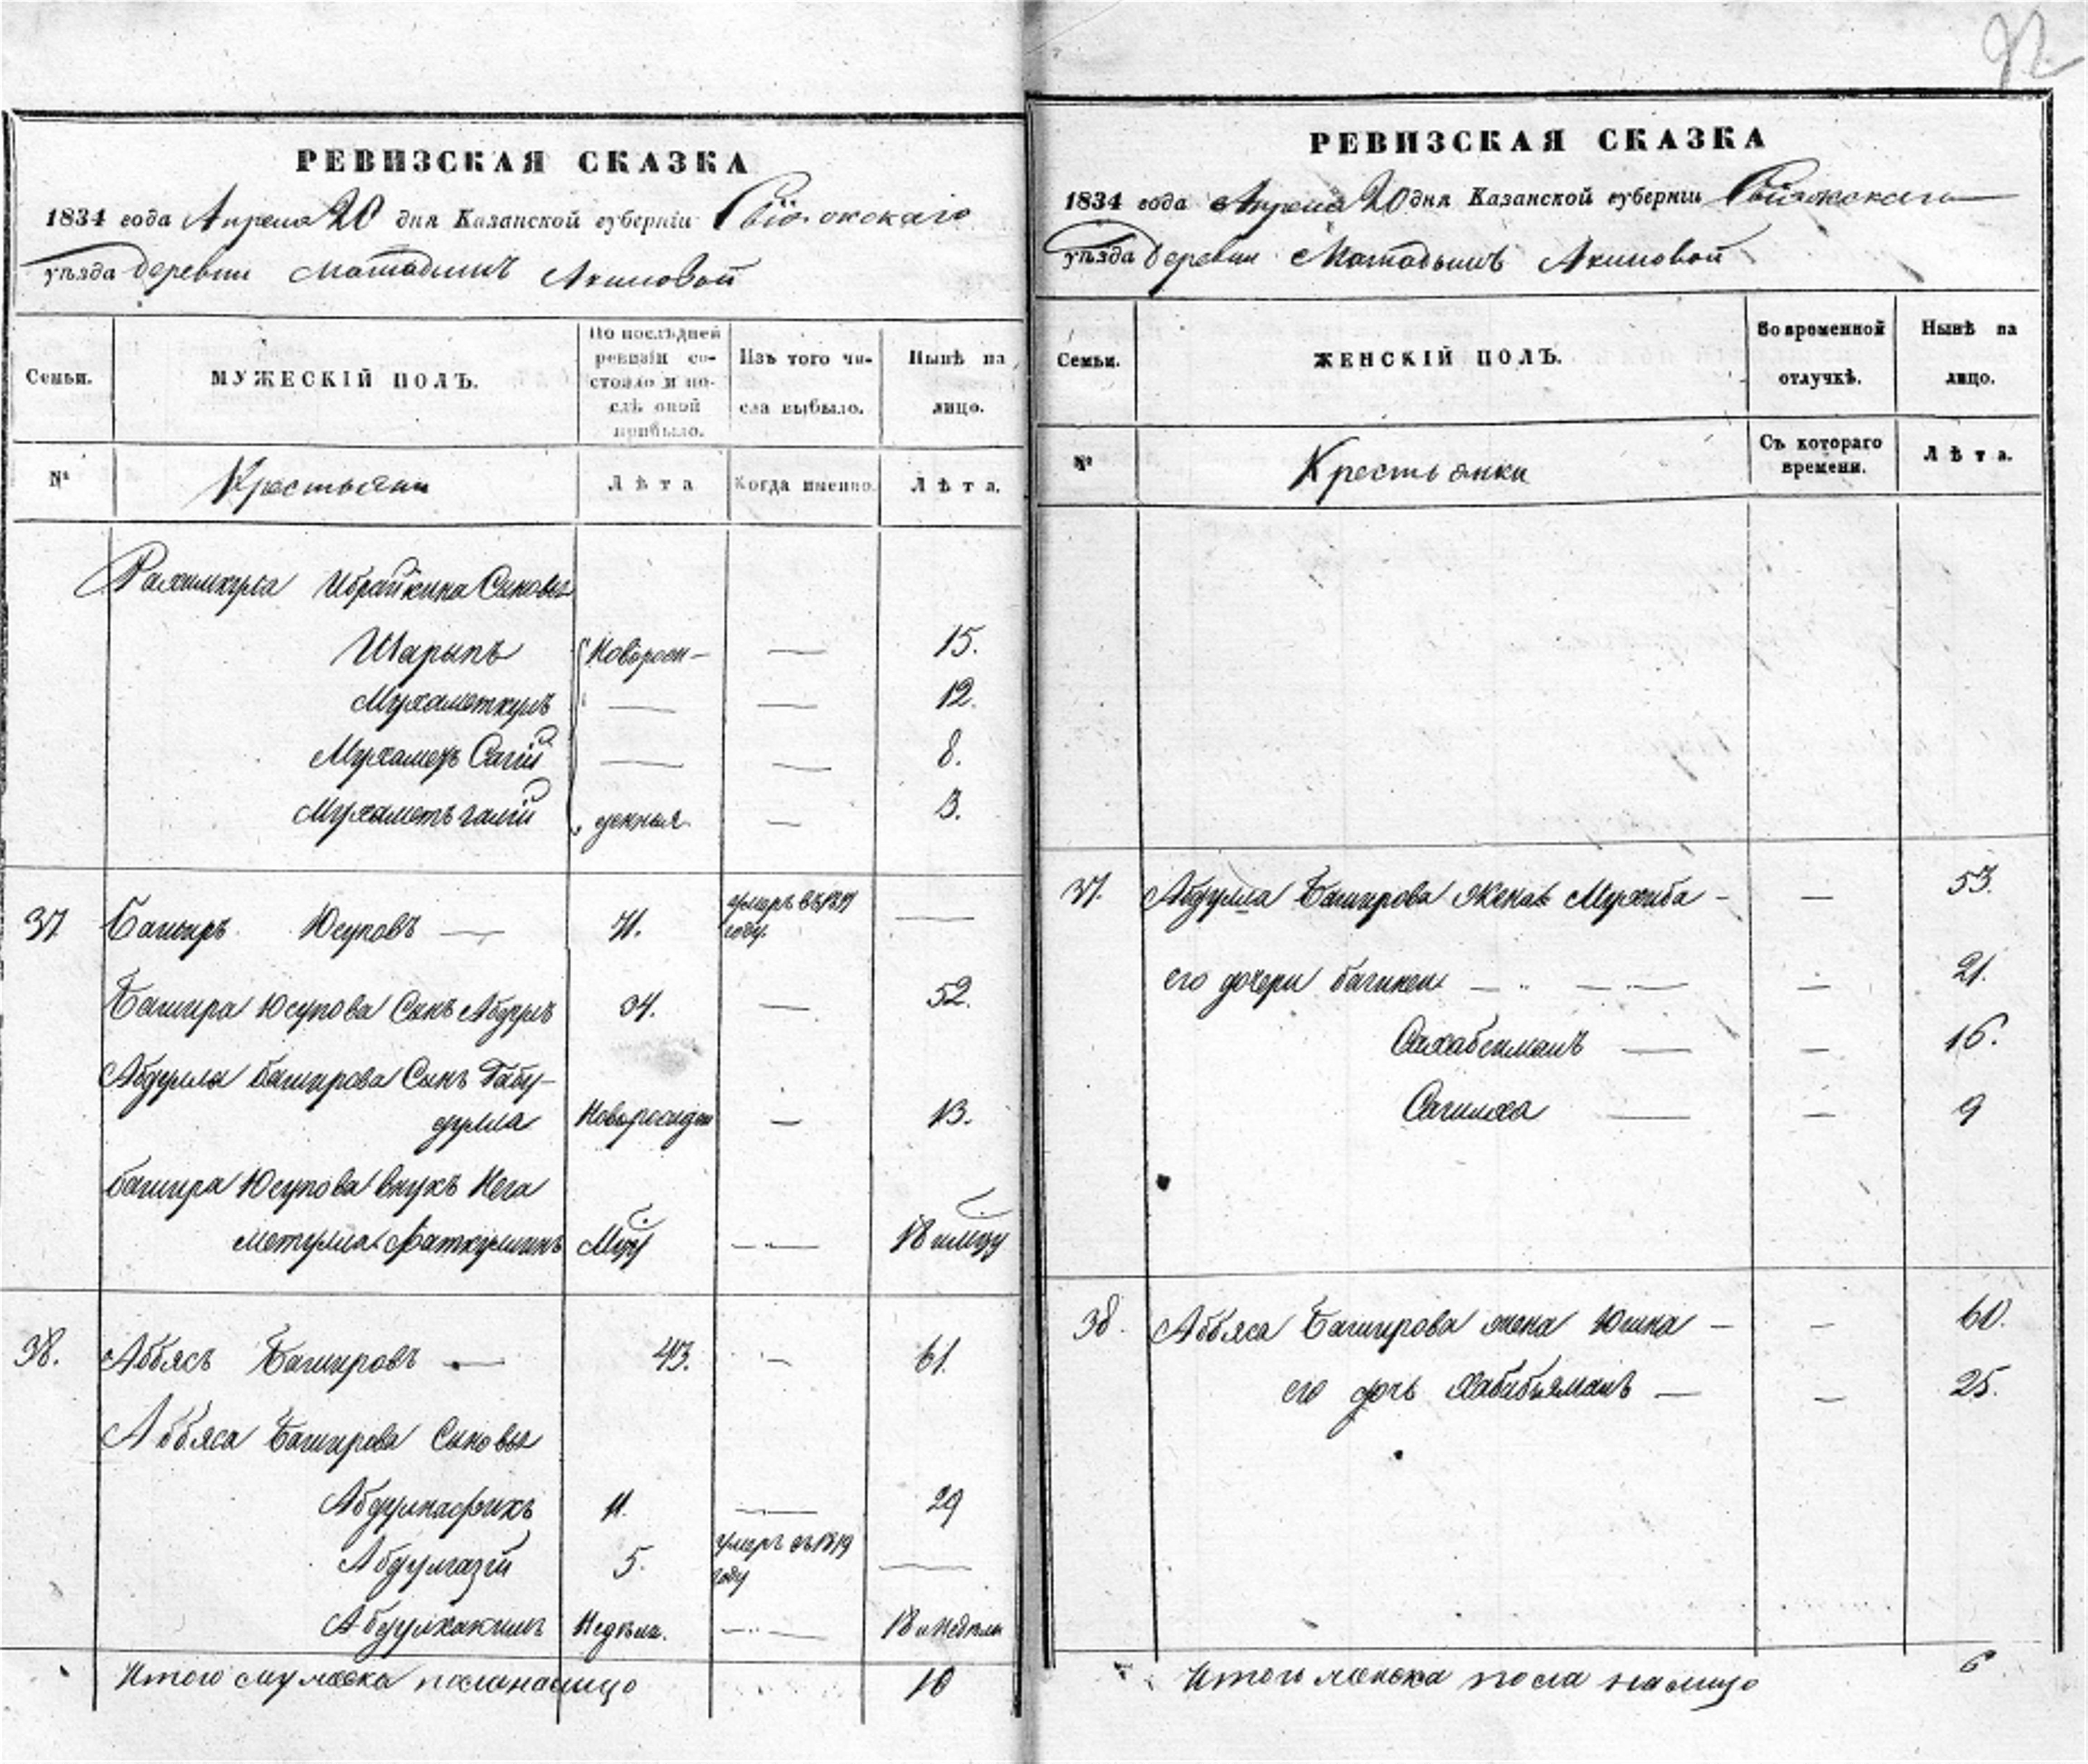 92
РЕВИЗСКАЯ СКАЗКА
1834 года Апреля 20 дня Казанской губерніи Свіяжскаго
уѣзда деревни Матадышъ Акиловой
Семьи.
МУЖЕСКІЙ ПОЛЪ.
По послѣдней ревизіи состояло и послѣ оной прибыло.
Изъ того числа выбыло.
Нынѣ на лицо.
№
Крестьяни
Лѣта
Когда именно.
Лѣта.
Рахимкула Ибрайкина Сыновья
Шарыпъ Новорож— — 15.
Мухаметкулъ — — 12.
Мухаметъ Сагій — — 8.
Мухаметъ галій денныя — 3.
37 Баширъ Юсуповъ — 71. умеръ въ 1819 году. —
Башира Юсупова Сынъ Абдулъ 34. — 52.
Абдулла Баширова Сынъ Габу-
дулла — 13.
Башира Юсупова внукъ Нега
метулла —
38. Аббясъ Башировъ — 43. — 61.
Аббяса Баширова Сыновья
Абдулнафикъ 11. — 29
Абдулгазій 5. умеръ въ 1819 году —
Абдулхакимъ Недѣли. — 18 и Недѣли
Итого мужеска пола налицо 10
РЕВИЗСКАЯ СКАЗКА
1834 года Апреля 20 дня Казанской губерніи Свіяжскаго
уѣзда деревни Матадышъ Акиловой
Семьи.
ЖЕНСКІЙ ПОЛЪ.
Во временной отлучкѣ.
Нынѣ на лицо.
№
Крестьянки
Съ котораго времени.
Лѣта.
37. Абдулла Баширова Жена Мухиба — — 53.
его дочери Багикей — — 21.
Сахабеиманъ — — 16.
Сагилха — — 9
38. Аббяса Баширова жена Юшка — — 60.
его дочь Хабибьяманъ — — 25.
Итого женска пола налицо 6